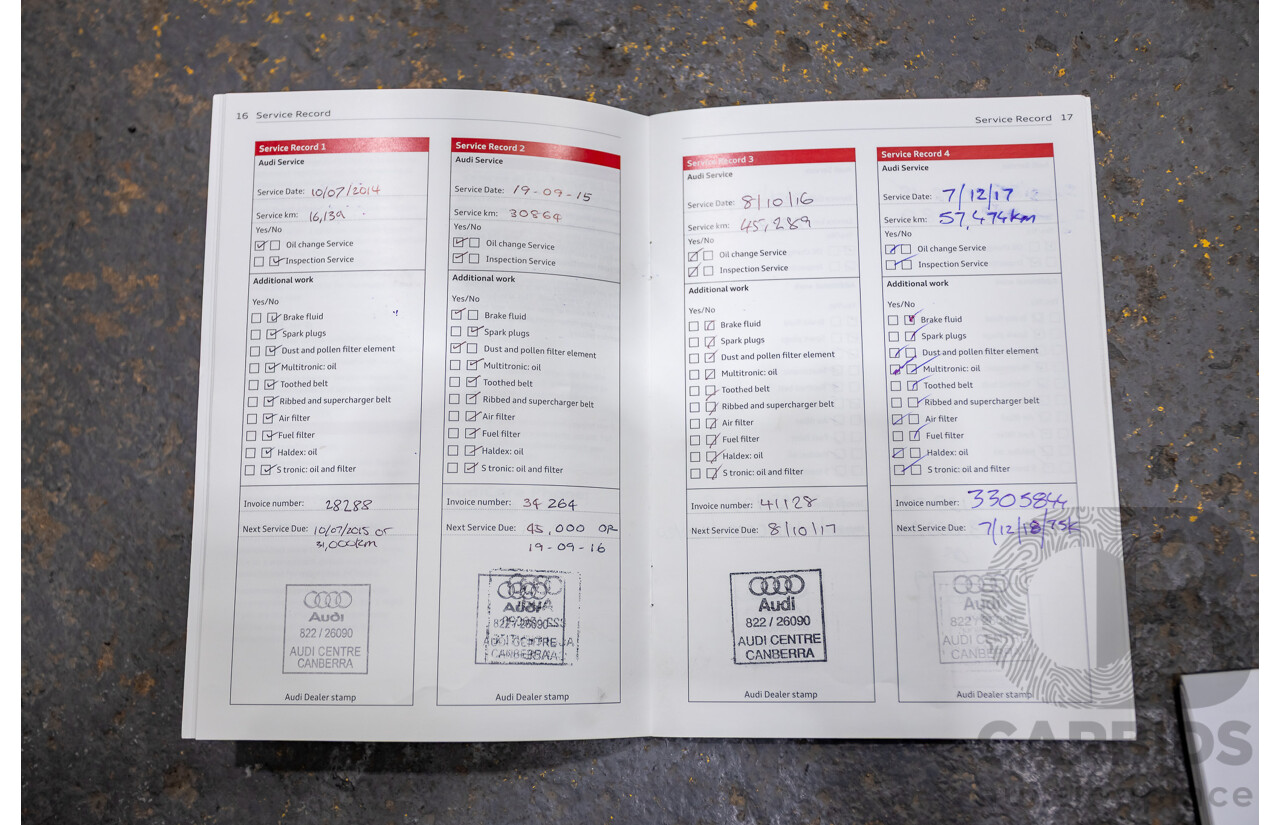 16 Service Record
Service Record 1
Audi Service
Service Date: 10/07/2014
Service km: 16,139
Yes/No
Oil change Service
Inspection Service
Additional work
Yes/No
Brake fluid
Spark plugs
Dust and pollen filter element
Multitronic: oil
Toothed belt
Ribbed and supercharger belt
Air filter
Fuel filter
Haldex: oil
S tronic: oil and filter
Invoice number: 28288
Next Service Due: 10/07/2015 or
31,000km
Audi
822 / 26090
AUDI CENTRE
CANBERRA
Audi Dealer stamp
Service Record 2
Audi Service
Service Date: 19-09-15
Service km: 30864
Yes/No
Oil change Service
Inspection Service
Additional work
Yes/No
Brake fluid
Spark plugs
Dust and pollen filter element
Multitronic: oil
Toothed belt
Ribbed and supercharger belt
Air filter
Fuel filter
Haldex: oil
S tronic: oil and filter
Invoice number: 34 264
Next Service Due: 45,000 OR
19-09-16
Audi Dealer stamp
Service Record 17
Service Record 3
Audi Service
Service Date: 8/10/16
Service km: 45,289
Yes/No
Oil change Service
Inspection Service
Additional work
Yes/No
Brake fluid
Spark plugs
Dust and pollen filter element
Multitronic: oil
Toothed belt
Ribbed and supercharger belt
Air filter
Fuel filter
Haldex: oil
S tronic: oil and filter
Invoice number: 41128
Next Service Due: 8/10/17
Audi
822 / 26090
AUDI CENTRE
CANBERRA
Audi Dealer stamp
Service Record 4
Audi Service
Service Date: 7/12/17
Service km: 57,474km
Yes/No
Oil change Service
Inspection Service
Additional work
Yes/No
Brake fluid
Spark plugs
Dust and pollen filter element
Multitronic: oil
Toothed belt
Ribbed and supercharger belt
Air filter
Fuel filter
Haldex: oil
S tronic: oil and filter
Invoice number: 3305844
Next Service Due: 7/12/18/75K
Audi
Audi Dealer stamp